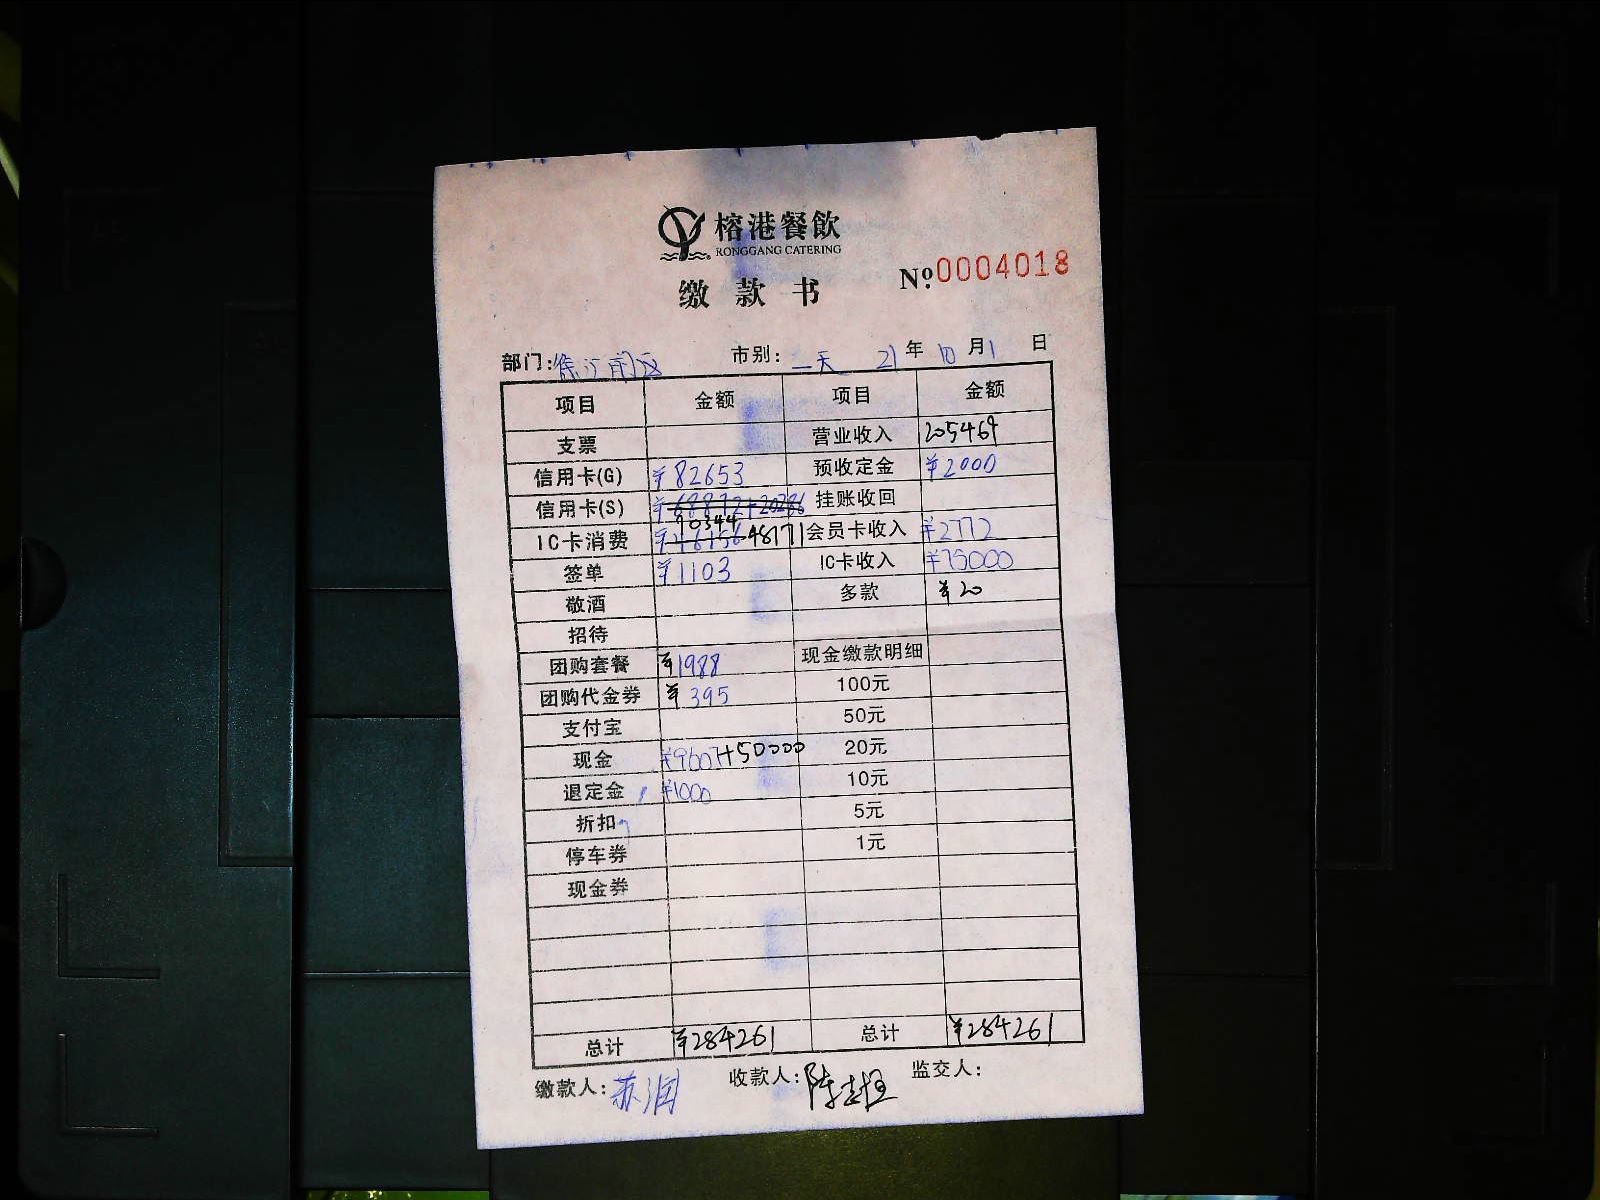 榕港餐飲
RONGGANG CATERING
缴款书
№0004018
部门: 市别: 一天 21年10月1日
项目 金额 项目 金额
支票 营业收入 205469
信用卡(G) ¥82653 预收定金 ¥2000
信用卡(S) ¥68872+20286 90344 挂账收回
IC卡消费 ¥46156 48171 会员卡收入 ¥2772
签单 ¥1103 IC卡收入 ¥75000
敬酒 多款 ¥20
招待
团购套餐 ¥1988 现金缴款明细
团购代金券 ¥395 100元
支付宝 50元
现金 ¥9607+50000 20元
退定金 ¥1000 10元
折扣 5元
停车券 1元
现金券
总计 ¥284261 总计 ¥284261
缴款人: 苏润 收款人: 陈 监交人: